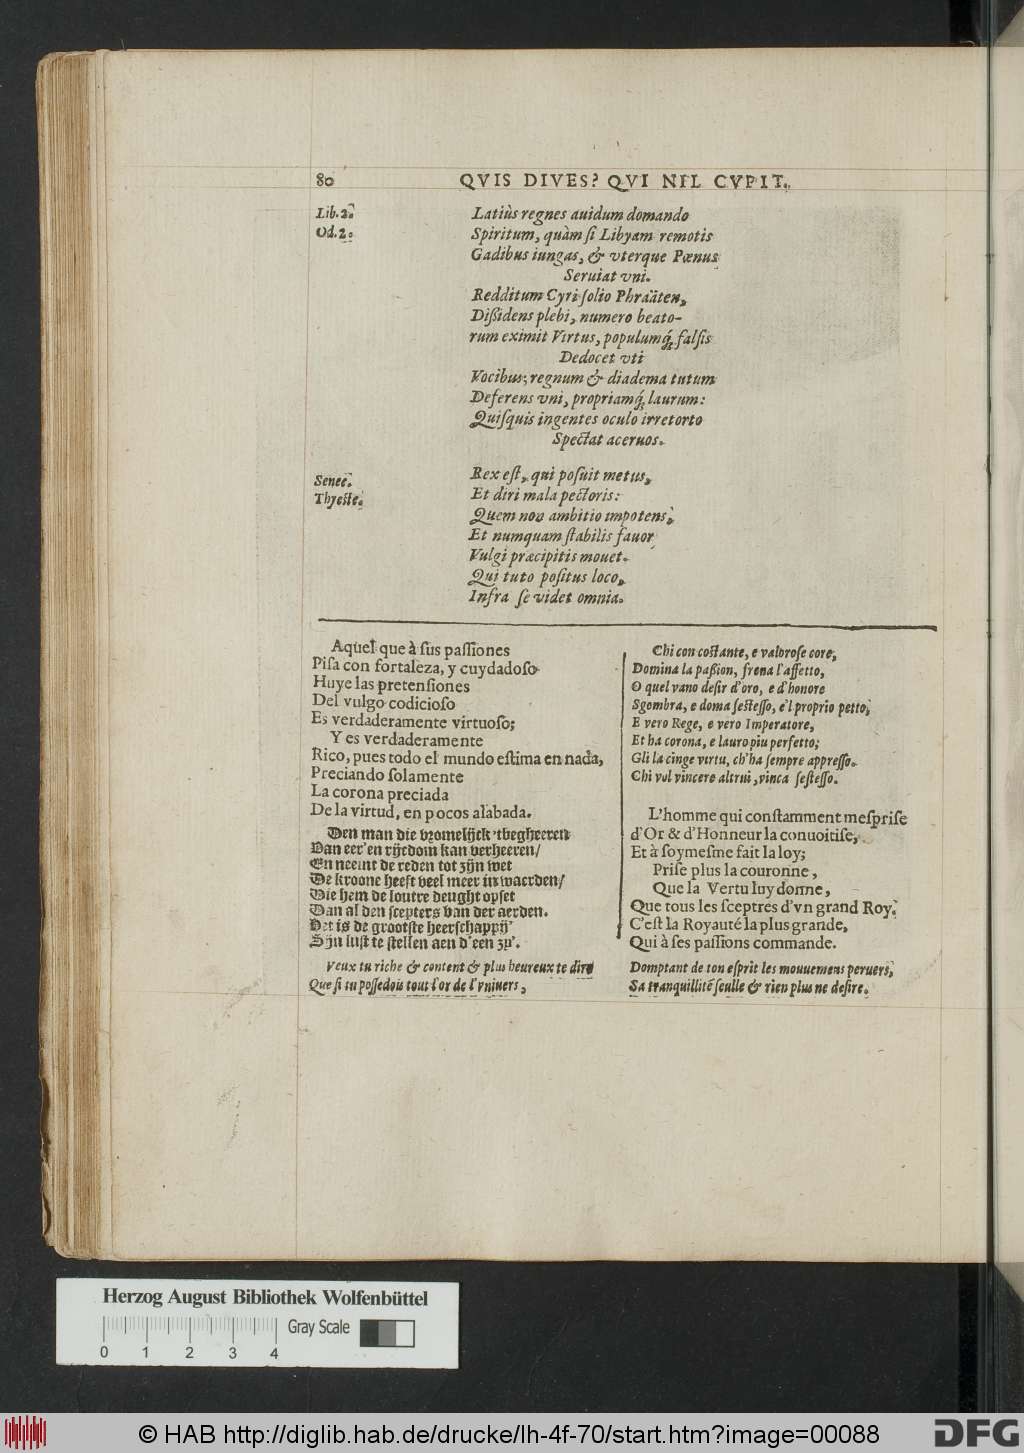 80 QVIS DIVES? QVI NIL CVPIT.
Lib. 2.
Od. 2.
Latiùs regnes auidum domando
Spiritum, quàm si Libyam remotis
Gadibus iungas, & vterque Pœnus
Seruiat vni.
Redditum Cyri solio Phraäten,
Dißidens plebi, numero beato-
rum eximit Virtus, populumq́; falsis
Dedocet vti
Vocibus; regnum & diadema tutum
Deferens vni, propriamq́; laurum:
Quisquis ingentes oculo irretorto
Spectat aceruos.
Senec.
Thyeste.
Rex est, qui posuit metus,
Et diri mala pectoris:
Quem non ambitio impotens,
Et numquam stabilis fauor
Vulgi præcipitis mouet.
Qui tuto positus loco,
Infra se videt omnia.
Aquel que à sus passiones
Pisa con fortaleza, y cuydadoso
Huye las pretensiones
Del vulgo codicioso
Es verdaderamente virtuoso;
Y es verdaderamente
Rico, pues todo el mundo estima en nada,
Preciando solamente
La corona preciada
De la virtud, en pocos alabada.
Den man die vromelijck 'tbegheeren
Van eer' en rijcdom kan verheeren/
En neemt de reden tot zijn wet
De kroone heeft veel meer in waerden/
Die hem de loutre deught opset
Dan al den scepters van der aerden.
Het is de grootste heerschappij
Sijn lust te stellen aen d'een zij'.
Chi con costante, e valorose core,
Domina la paßion, frena l'affetto,
O quel vano desir d'oro, e d'honore
Sgombra, e doma sestesso, e'l proprio petto,
E vero Rege, e vero Imperatore,
Et ha corona, e lauro piu perfetto;
Gli la cinge virtu, ch'ha sempre appresso.
Chi vol vincere altrui, vinca sestesso.
L'homme qui constamment mesprise
d'Or & d'Honneur la conuoitise,
Et à soymesme fait la loy;
Prise plus la couronne,
Que la Vertu luy donne,
Que tous les sceptres d'vn grand Roy.
C'est la Royauté la plus grande,
Qui à ses passions commande.
Veux tu riche & content & plus heureux te dire
Que si tu possedois tout l'or de l'vniuers,
Domptant de ton esprit les mouuemens peruers,
Sa tranquillité seulle & rien plus ne desire.
Herzog August Bibliothek Wolfenbüttel
Gray Scale
0 1 2 3 4
© HAB http://diglib.hab.de/drucke/lh-4f-70/start.htm?image=00088
DFG